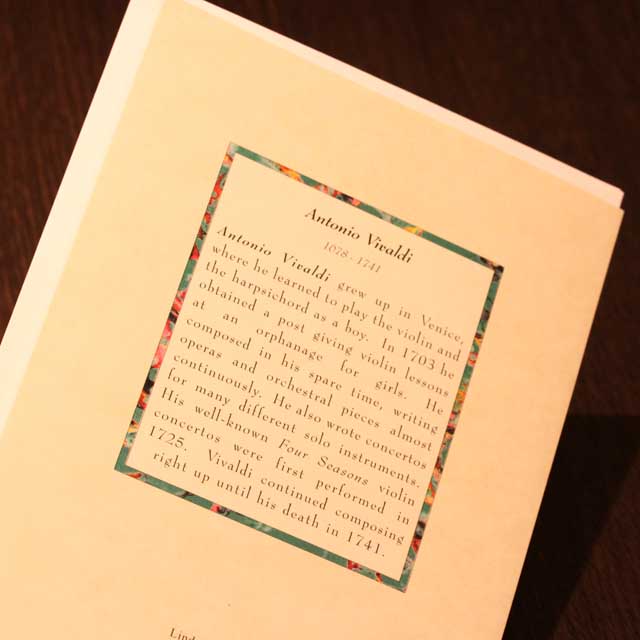 Antonio Vivaldi
1678 - 1741
Antonio Vivaldi grew up in Venice,
where he learned to play the violin and
the harpsichord as a boy. In 1703 he
obtained a post giving violin lessons
at an orphanage for girls. He
composed in his spare time, writing
operas and orchestral pieces almost
continuously. He also wrote concertos
for many different solo instruments.
His well-known Four Seasons violin
concertos were first performed in
1725. Vivaldi continued composing
right up until his death in 1741.